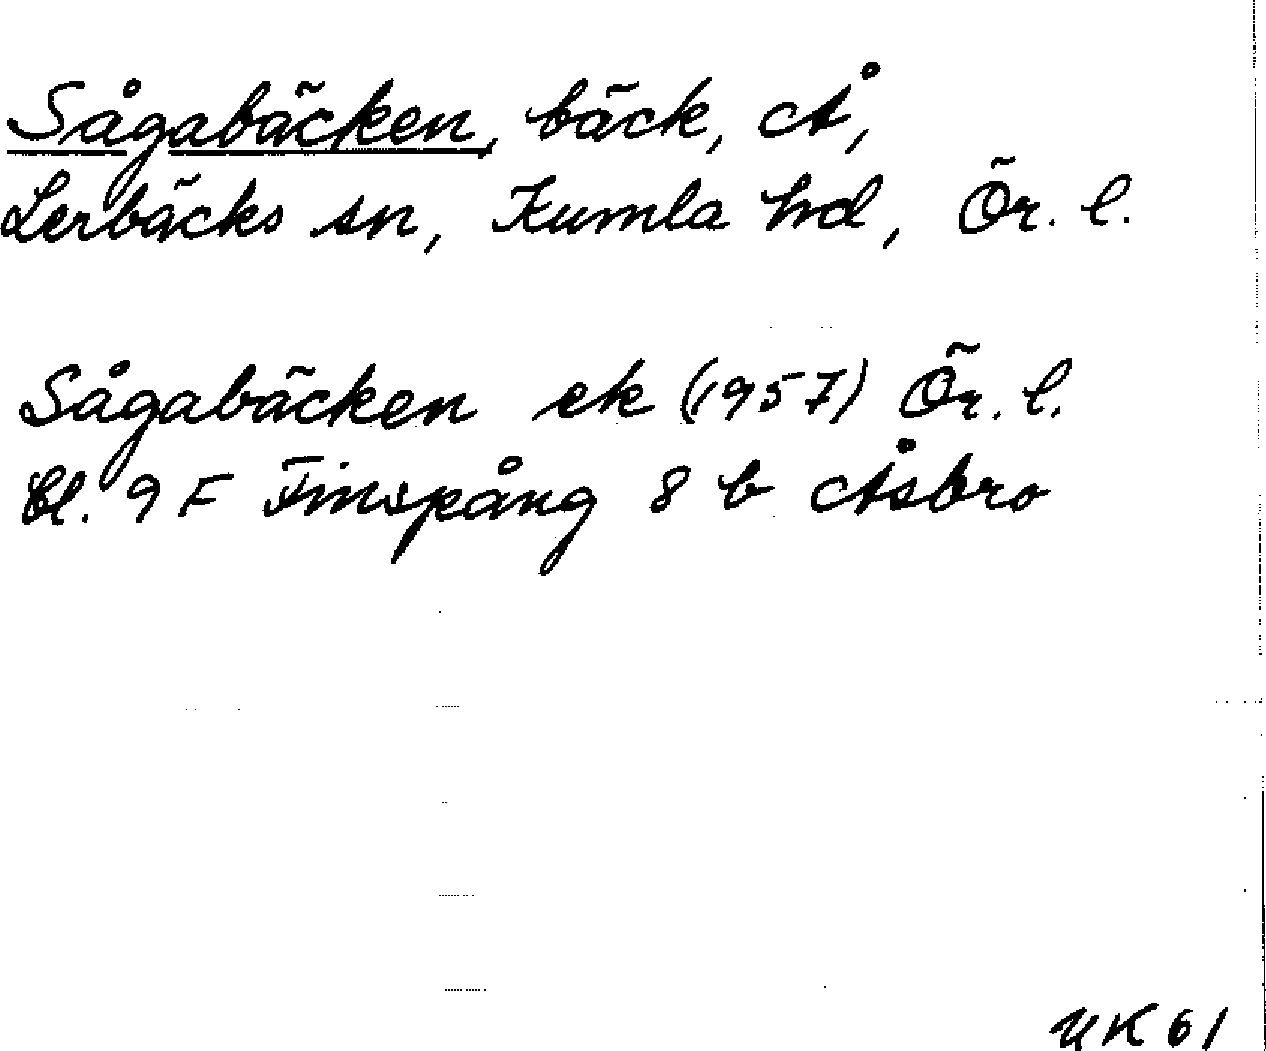 Sågabäcken, bäck, Å,
Lerbäcks sn, Kumla hd, Ör. l.
Sågabäcken ek (1957) Ör. l.
bl. 9 F Finspång 8 b Åsbro
UK 61